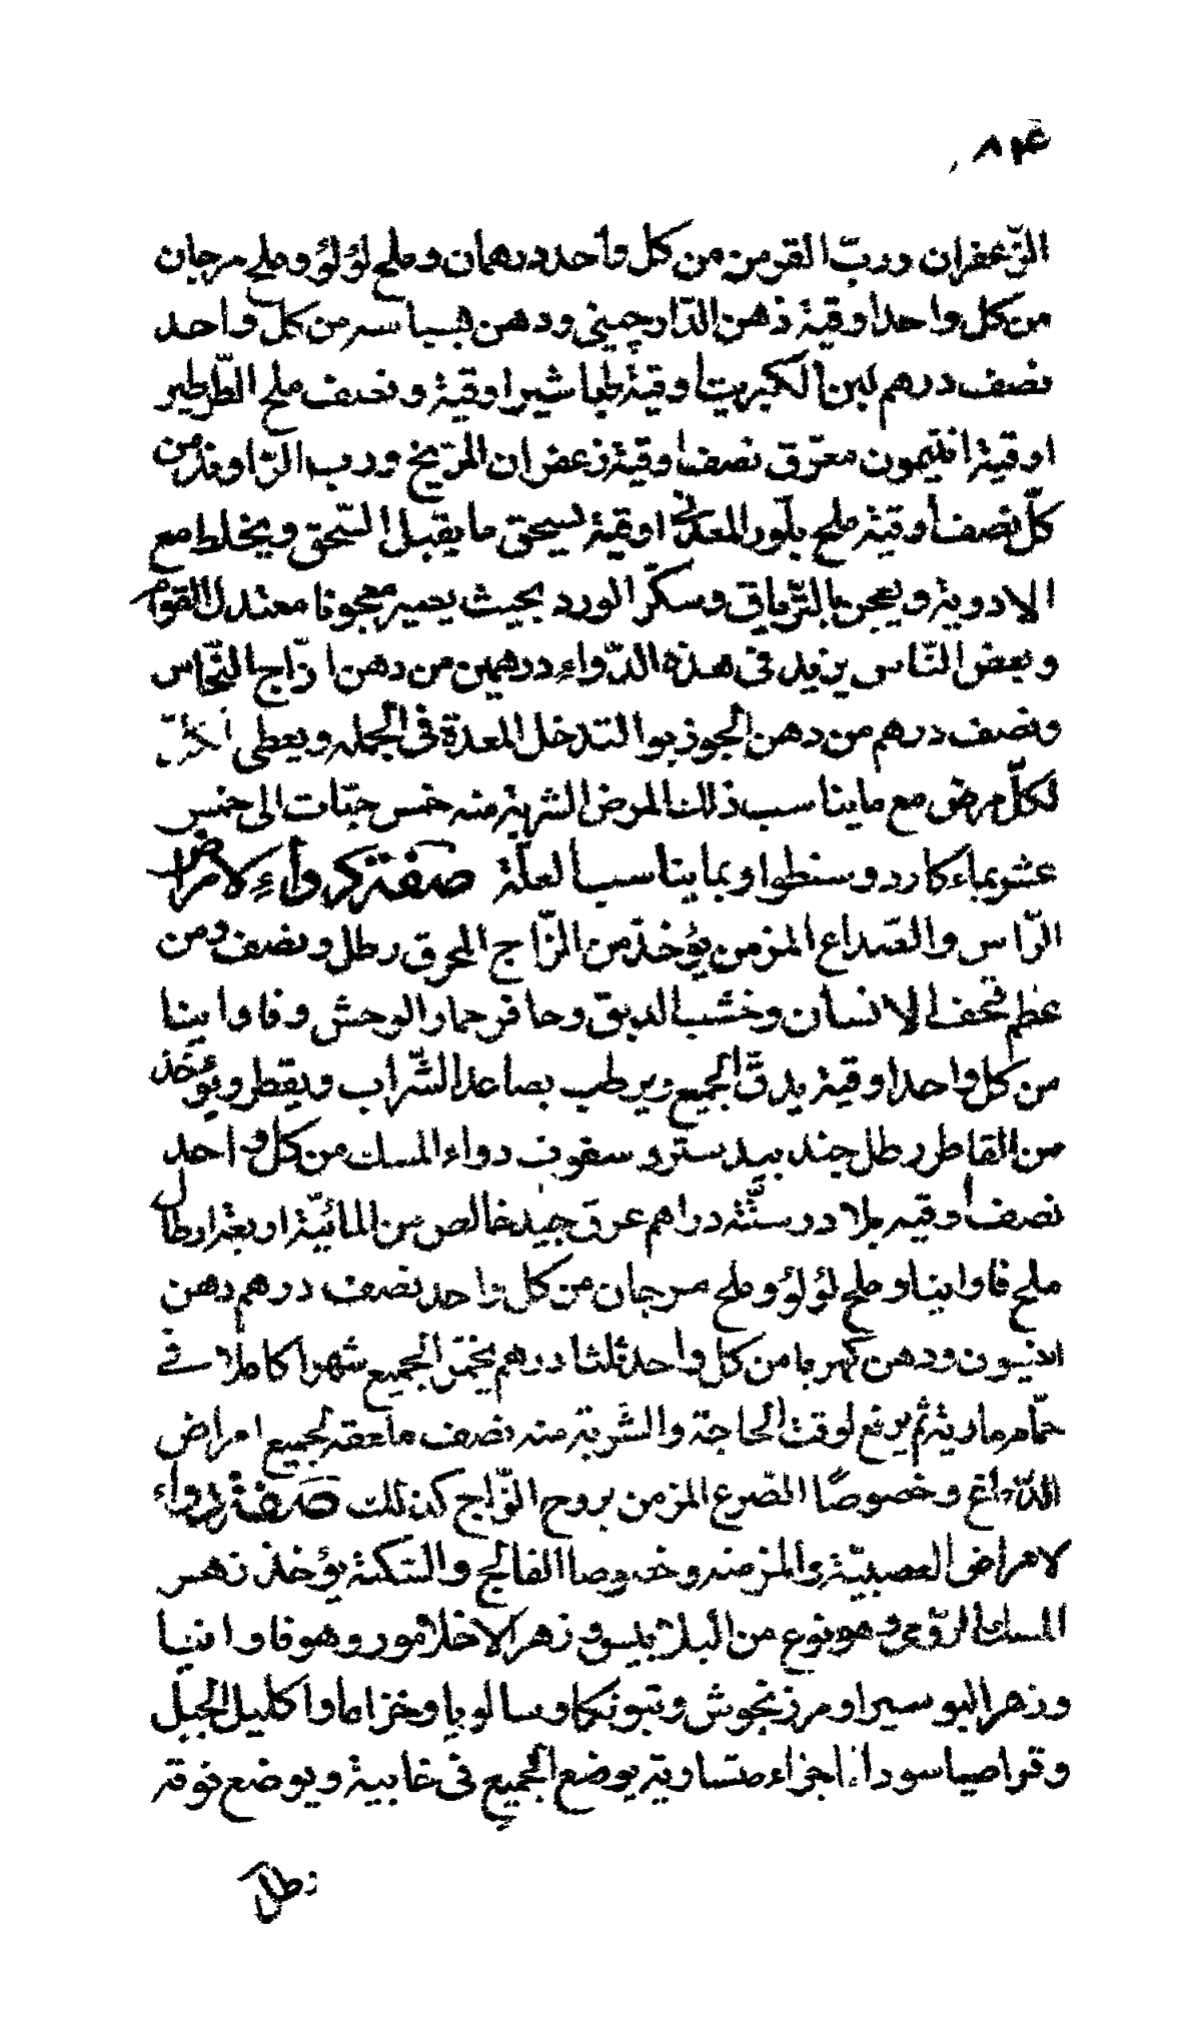 الزّعفران وربّ القومن من كل واحد درهمان وملح لؤلؤ وملح مرجان
من كل واحد اوقية دهن الدّارچيني ودهن بسباسه من كل واحد
نصف درهم لبن الكبريت اوقية طباشير اوقية ونصف ملح الطّرطير
اوقية افتيمون معرّق نصف اوقية زعفران المرّيخ ورب الرّاوند من
كلّ نصف اوقية ملح بلّور المعدني اوقية يسحق ما يقبل السّحق ويخلط مع
الادوية ويعجن بالترياق وسكّر الورد بحيث يصير معجونا معتدل القوام
وبعض النّاس يزيد فى هذه الدّواء درهمين من دهن الزّاج النّحاس
ونصف درهم من دهن الجوزبوا لتدخل المعدة فى الجمله ويعطى
لكلّ مرض مع ما يناسب ذلك المرض الشربة منه خمس حبّات الى خمس
عشر بماء كاردوسنطوا وبما يناسب العلّة صفة تركى دواء لامراض
الرّاس والصّداع المزمن يؤخذ من الزّاج المحرق رطل ونصف ومن
عظم قحف الانسان وخشب الدبق وحافر حمار الوحش وفاوانيا
من كل واحد اوقية يدقّ الجميع ويرطب بصاعد الشّراب ويقطر ويؤخذ
من القاطر رطل جندبيدستر و سفوف دواء المسك من كل واحد
نصف اوقيه بلادر ستّة دراهم عرق جيد خالص من المائيّة اربعة ارطال
ملح فاوانيا وملح لؤلؤ وملح مرجان من كل واحد نصف درهم دهن
انيسون ودهن كهربا من كل واحد ثلثا درهم يخمّر الجميع شهرا كاملا فى
حمّام مارية ثم يرفع لوقت الحاجة والشّربة منه نصف ملعقه لجميع امراض
الدّماغ وخصوصًا الصّرع المزمن بروح الزّاج كذلك صفة دواء
لامراض العصبيّة والمزمنه وخصوصا الفالج والسّكتة يؤخذ زهر
المسك الرّومى وهو نوع من وزهر وهو فاوانيا
وزهر ومرزنجوش وخزاما واكليل الجبل
وقراصيا سودا اجزاء متساوية يوضع الجميع فى خابية ويوضع فوقه
رطل